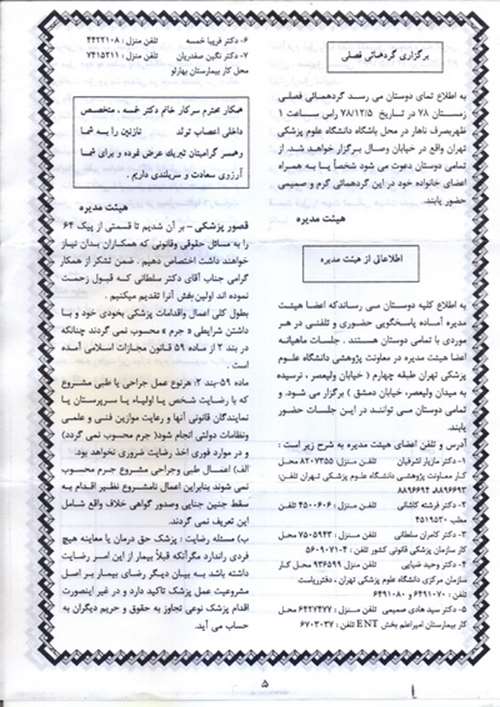 برگزاری گردهمائی فصلی
به اطلاع تمای دوستان می رسد گردهمائی فصلی
زمستان ۷۸ در تاریخ ۷۸/۱۲/۵ راس ساعت ۱
ظهربصرف ناهار در محل باشگاه دانشگاه علوم پزشکی
تهران واقع در خیابان وصال برگزار خواهد شد. از
تمامی دوستان دعوت می شود شخصاً یا به همراه
اعضای خانواده خود در این گردهمائی گرم و صمیمی
حضور یابند.
هیئت مدیره
اطلاعاتی از هیئت مدیره
به اطلاع کلیه دوستان می رساندکه اعضا هیئت
مدیره آماده پاسخگویی حضوری و تلفنی در هر
موردی با تمامی دوستان هستند . جلسات ماهیانه
اعضا هیئت مدیره در معاونت پژوهشی دانشگاه علوم
پزشکی تهران طبقه چهارم ( خیابان ولیعصر ، نرسیده
به میدان ولیعصر، خیابان دمشق ) برگزار می شود. و
تمامی دوستان می توانند در این جلسات حضور
یابند.
آدرس و تلفن اعضای هیئت مدیره به شرح زیر است :
۱- دکتر مازیار اشرفیان تلفن منزل: ۸۲۰۷۳۵۵ محل
کار معاونت پژوهشی دانشگاه علوم پزشکی تهران تلفن:
۸۸۹۶۶۹۳ ۸۸۹۶۶۹۴
۲- دکتر فرشته کاشانی تلفن منزل : ۴۵۰۰۶۰۶ تلفن
مطب ۴۵۱۹۵۳۰
۳- دکتر کامران سلطانی تلفن منزل: ۷۵۰۵۹۴۳ محل
کار سازمان پزشکی قانونی کشور تلفن : ۵۶۰۹۰۷۱۰۴
۴- دکتر وحید ضیایی تلفن منزل ۹۳۶۵۹۹ محل کار
سازمان مرکزی دانشگاه علوم پزشکی تهران ، دفترریاست
تلفن : ۶۴۹۱۰۷۰ و ۶۴۹۱۰۸۰
۵- دکتر سید هادی صمیمی تلفن منزل: ۶۴۲۷۴۷۷ محل
کار بیمارستان امیراعلم بخش ENT تلفن : ۶۷۰۳۰۳۷
۶- دکتر فریبا خمسه تلفن منزل : ۴۴۲۲۱۰۸
۷- دکتر نگین صفدریان تلفن منزل : ۷۴۱۵۳۱۱
محل کار بیمارستان بهارلو
همکار محترم سرکار خانم دکتر خمسه ، متخصص
داخلی اعصاب تولد نازنین را به شما
وهمسر گرامیتان تبریک عرض کرده و برای شما
آرزوی سعادت و سربلندی داریم .
هیئت مدیره
قصور پزشکی – بر آن شدیم تا قسمتی از پیک ۶۴
را به مسائل حقوقی وقانونی که همکاران بدان نیاز
خواهند داشت اختصاص دهیم . ضمن تشکر از همکار
گرامی جناب آقای دکتر سلطانی که قبول زحمت
نموده اند اولین بخش آنرا تقدیم میکنیم .
بطول کلی اعمال واقدامات پزشکی بخودی خود و با
داشتن شرایطی « جرم » محسوب نمی گردند چنانکه
در بند ۲ از ماده ۵۹ قانون مجازات اسلامی آمده
است .
ماده ۵۹-بند ۲: هرنوع عمل جراحی یا طبی مشروع
که با رضایت شخص یا اولیاء یا سرپرستان یا
نمایندگان قانونی آنها و رعایت موازین فنی و علمی
ونظامات دولتی انجام شود( جرم محسوب نمی گردد)
و در موارد فوری اخذ رضایت ضروری نخواهد بود.
الف) اعمال طبی وجراحی مشروع جرم محسوب
نمی شوند بنابراین اعمال نامشروع نظیر اقدام به
سقط جنین جنایی وصدور گواهی خلاف واقع شامل
این تعریف نمی گردند.
ب) مسئله رضایت : پزشک حق درمان یا معاینه هیچ
فردی راندارد مگرآنکه قبلاً بیمار از این امر رضایت
داشته باشد به بیان دیگر رضای بیمار بر اصل
مشروعیت عمل پزشک تاکید دارد و در غیر اینصورت
اقدام پزشک نوعی تجاوز به حقوق و حریم دیگران به
حساب می آید.
۵